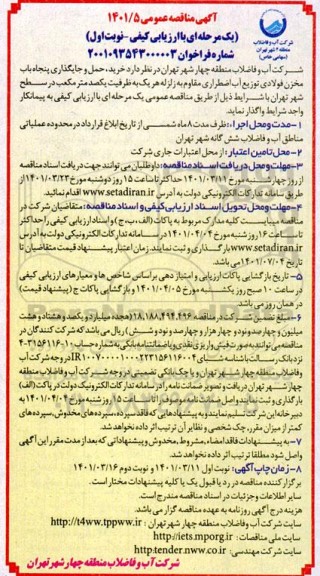 آگهی مناقصه عمومی ۱۴۰۱/۵
(یک مرحله‌ای با ارزیابی کیفی - نوبت اول)
شماره فراخوان ۲۰۰۱۰۹۳۵۴۳۰۰۰۰۰۳
شرکت آب و فاضلاب
منطقه ۴ شهر تهران
(سهامی خاص)
شرکت آب و فاضلاب منطقه چهار شهر تهران در نظر دارد خرید، حمل و جایگذاری پنجاه باب
مخزن فولادی توزیع آب اضطراری مقاوم به زلزله هر یک به ظرفیت یکصد متر مکعب در سطح
شهر تهران با شرایط ذیل از طریق مناقصه عمومی یک مرحله‌ای با ارزیابی کیفی به پیمانکار
واجد شرایط واگذار نماید.
۱- مدت و محل اجرا: ظرف مدت ۸ ماه شمسی از تاریخ ابلاغ قرارداد در محدوده عملیاتی
مناطق آب و فاضلاب شش گانه شهر تهران
۲- محل تامین اعتبار: از محل اعتبارات جاری شرکت
۳- مهلت و محل دریافت اسناد مناقصه: داوطلبان می‌توانند جهت دریافت اسناد مناقصه
از روز چهارشنبه مورخ ۱۴۰۱/۰۳/۱۱ حداکثر تا ساعت ۱۵ روز دوشنبه مورخ ۱۴۰۱/۰۳/۲۳ از
طریق سامانه تدارکات الکترونیکی دولت به آدرس www.setadiran.ir اقدام نمایند.
۴- مهلت و محل تحویل اسناد ارزیابی کیفی و اسناد مناقصه: متقاضیان شرکت در
مناقصه میبایست کلیه مدارک مربوط به پاکات (الف، ب، ج) و اسناد ارزیابی کیفی را حداکثر
تا ساعت ۱۶ روز شنبه مورخ ۱۴۰۱/۰۴/۰۴ در سامانه تدارکات الکترونیکی دولت به آدرس
www.setadiran.ir بارگذاری و ثبت نمایند. زمان اعتبار پیشنهاد قیمت متقاضیان تا
تاریخ ۱۴۰۱/۰۷/۰۴ می باشد.
۵- تاریخ بازگشایی پاکات ارزیابی و امتیازدهی بر اساس شاخص ها و معیارهای ارزیابی کیفی
در ساعت ۱۰ صبح روز یکشنبه مورخ ۱۴۰۱/۰۴/۰۵ و بازگشایی پاکات ج (پیشنهاد قیمت)
در همان روز می باشد.
۶- مبلغ تضمین شرکت در مناقصه ۱۸,۱۸۸,۴۹۴,۴۹۶ (هجده میلیارد و یکصد و هشتاد و هشت
میلیون و چهارصد و نود و چهار هزار و چهارصد و نود و شش) ریال می باشد که شرکت کنندگان در
مناقصه می توانند به صورت فیش واریزی نقدی یا ضمانتنامه بانکی به شماره حساب
نزد بانک رسالت با شناسه شبای در وجه شرکت آب
وفاضلاب منطقه چهار شهر تهران و یا چک بانکی تضمینی در وجه شرکت آب و فاضلاب منطقه
چهار شهر تهران دریافت و تصویر ضمانت نامه را در سامانه تدارکات الکترونیک دولت در پاکت (الف)
بارگذاری و ثبت نمایند و اصل ضمانت نامه را حداکثر تا ساعت ۱۵ روز شنبه مورخ ۱۴۰۱/۰۴/۰۴ به
دبیرخانه این شرکت تسلیم نمایند و به پیشنهادهایی که فاقد سپرده، سپرده‌های مخدوش، سپرده‌های
کمتر از میزان مقرر، چک شخصی و نظایر آن ترتیب اثر داده نخواهد شد.
۷- به پیشنهادات فاقد امضاء، مشروط، مخدوش و پیشنهاداتی که بعد از مدت مقرر این آگهی
واصل شود مطلقا ترتیب اثر داده نخواهد شد.
۸- زمان چاپ آگهی: نوبت اول ۱۴۰۱/۰۳/۱۱ و نوبت دوم ۱۴۰۱/۰۳/۱۶
برگزارکننده مناقصه در رد یا قبول یک یا کلیه پیشنهادات مختار است.
سایر اطلاعات و جزئیات در اسناد مناقصه مندرج است.
هزینه درج آگهی روزنامه به عهده مناقصه گزار می باشد.
سایت شرکت آب و فاضلاب منطقه چهار شهر تهران: http://t4ww.tppww.ir
سایت ملی مناقصات: http://iets.mporg.ir
سایت شرکت مهندسی: http:tender.nww.co.ir
شرکت آب و فاضلاب منطقه چهار شهر تهران